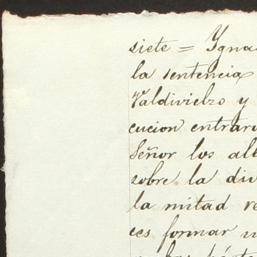 siete = Ygna
la sentencia
Valdivielzo y
cucion entrara
Señor los al
sobre la di
la mitad ve
ces formar